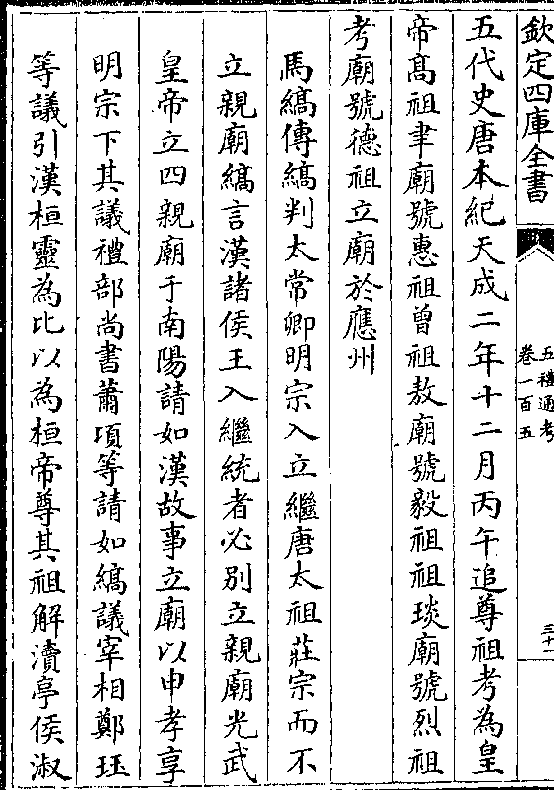 欽定四庫全書
五禮通考
卷一百五
三十一
五代史唐本紀天成二年十二月丙午追尊祖考為皇
帝髙祖聿廟號惠祖曾祖敖廟號毅祖祖琰廟號烈祖
考廟號德祖立廟於應州
馬縞傳縞判太常卿明宗入立繼唐太祖莊宗而不
立親廟縞言漢諸侯王入繼統者必别立親廟光武
皇帝立四親廟于南陽請如漢故事立廟以申孝享
明宗下其議禮部尚書蕭頊等請如縞議宰相鄭珏
等議引漢桓靈為比以為桓帝尊其祖解瀆亭侯淑